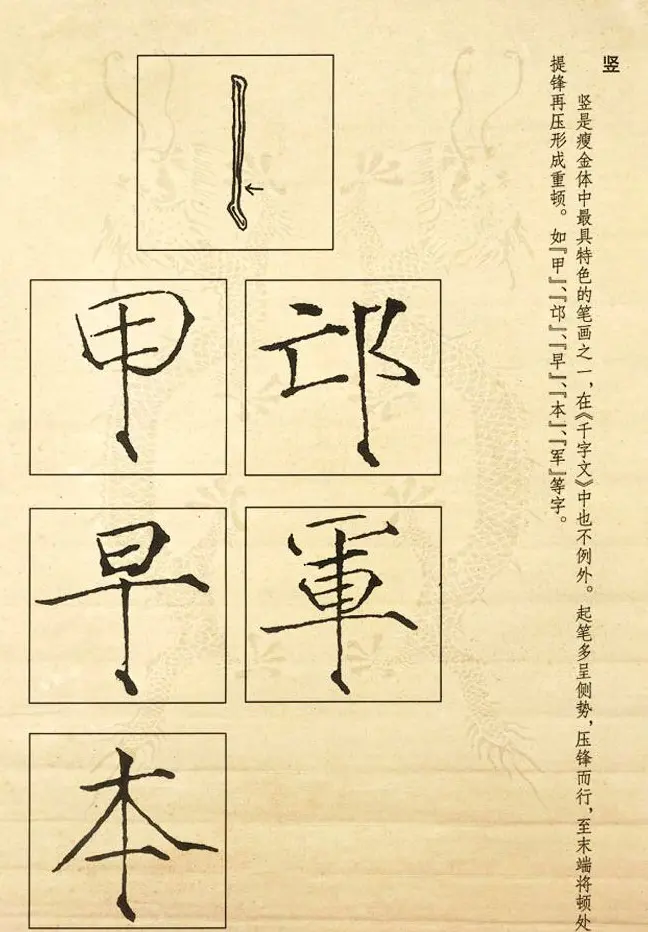 竖
竖是瘦金体中最具特色的笔画之一，在《千字文》中也不例外。起笔多呈侧势，压锋而行，至末端将顿处
提锋再压形成重顿。如『甲』、『邙』、『早』、『本』、『军』等字。
邙
甲
軍
早
本